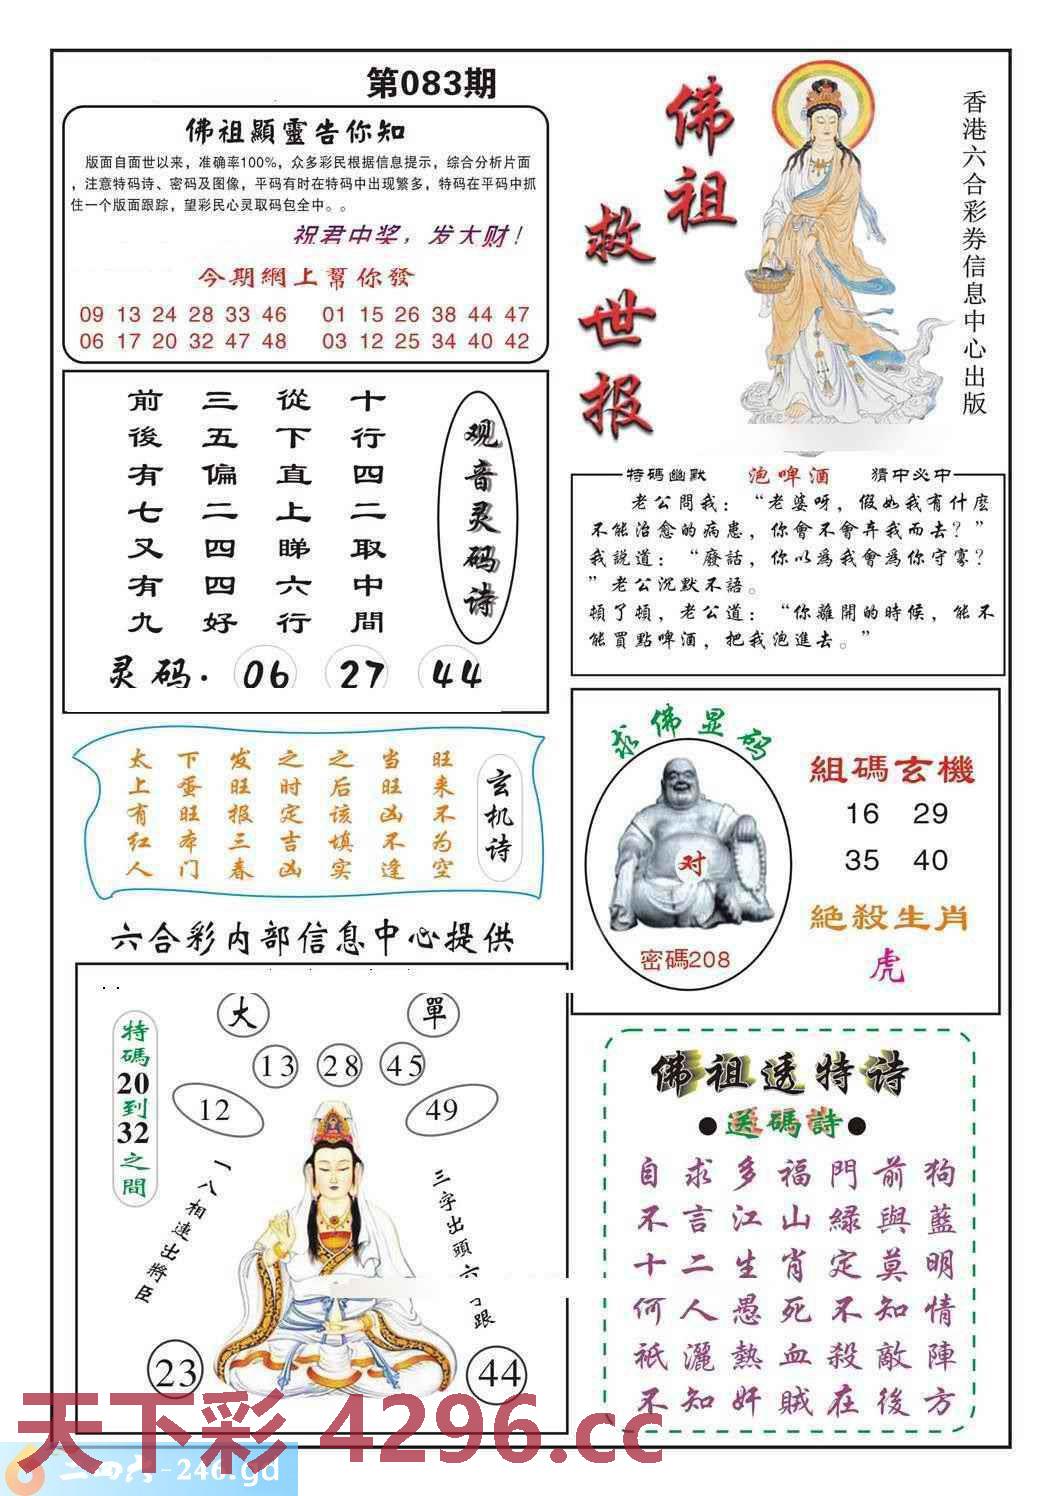 第083期
佛祖顯靈告你知
版面自面世以来，准确率100%，众多彩民根据信息提示，综合分析片面
，注意特码诗、密码及图像，平码有时在特码中出现繁多，特码在平码中抓
住一个版面跟踪，望彩民心灵取码包全中。。
祝君中奖，发大财！
今期網上幫你發
09 13 24 28 33 46 01 15 26 38 44 47
06 17 20 32 47 48 03 12 25 34 40 42
佛祖
救世报
香港六合彩券信息中心出版
观音灵码诗
十行四二取中間
從下直上睇六行
三五偏二四四好
前後有七又有九
灵码. 06 27 44
特碼幽默 泡啤酒 猜中必中
老公問我：“老婆呀，假如我有什麼
不能治愈的病患，你會不會弃我而去？”
我説道：“廢話，你以爲我會爲你守寡？
”老公沉默不語。
頓了頓，老公道：“你離開的時候，能不
能買點啤酒，把我泡進去。”
玄机诗
旺来不为空
当旺凶不逢
之后该填实
之时定吉凶
发旺报三春
下蛋旺本门
太上有红人
求佛显码
对
密碼208
組碼玄機
16 29
35 40
絕殺生肖
虎
六合彩内部信息中心提供
特碼20到32之間
大 單
13 28 45
12 49
一八相連出將臣
三字出頭六 跟
23 44
佛祖透特诗
●送碼詩●
自求多福門前狗
不言江山緑與藍
十二生肖定莫明
何人愚死不知情
祇灑熱血殺敵陣
不知奸賊在後方
天下彩 4296.cc
二四六-246.gd